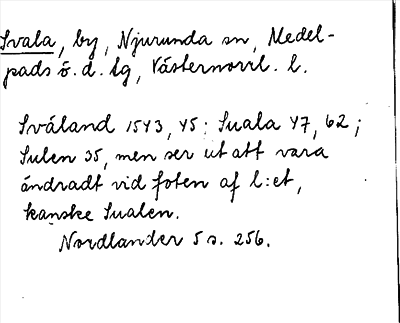 Svala, by, Njurunda sn, Medel-
pads ö. d. tg, Västernorrl. l.
Sváland 1543, 45; Suala 47, 62;
Sulen 35, men ser ut att vara
ändradt vid foten af l:et,
kanske Sualen.
Nordlander 5 s. 256.